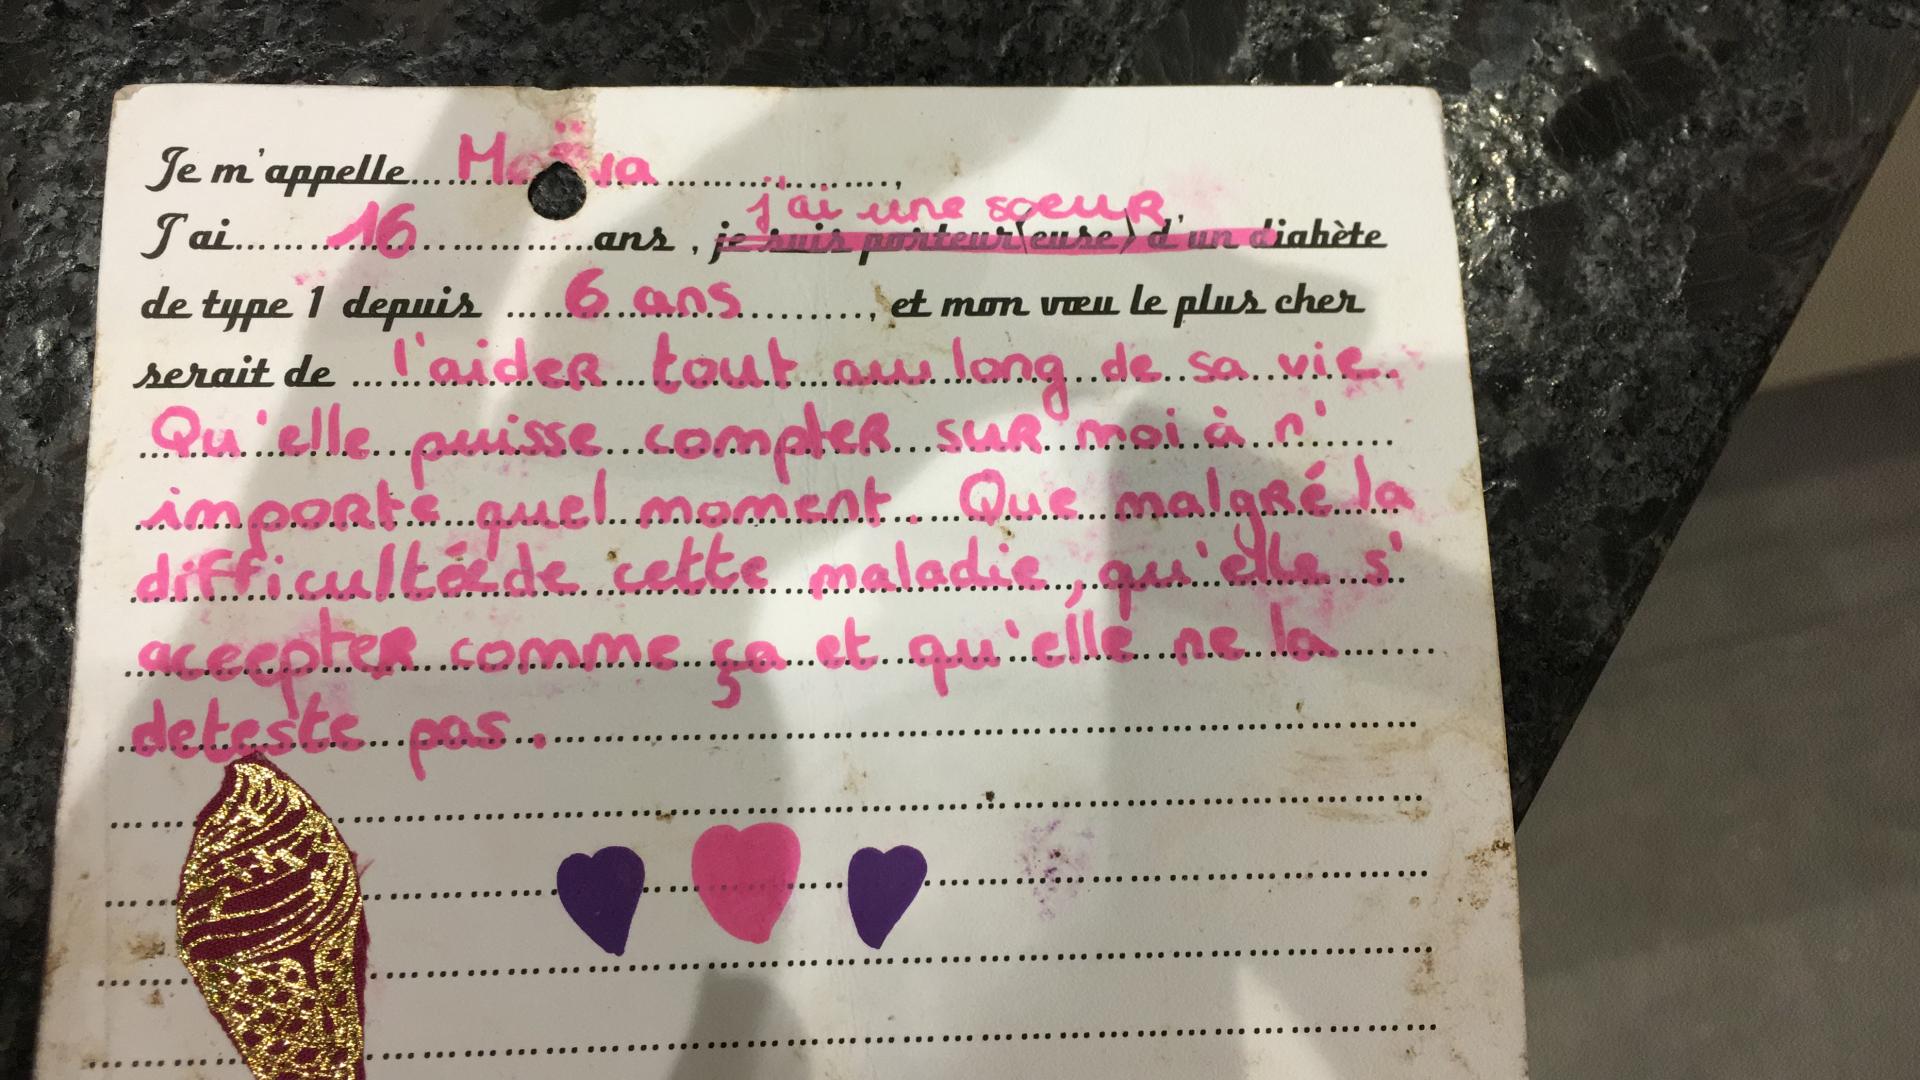 Je m'appelle...Maëva......,
j'ai une sœur
J'ai...16...ans, je suis porteur(euse) d'un diabète
de type 1 depuis ...6 ans..., et mon vœu le plus cher
serait de ...l'aider tout au long de sa vie.
Qu'elle puisse compter sur moi à n'
importe quel moment. Que malgré la
difficulté de cette maladie, qu'elle s'
accepter comme ça et qu'elle ne la
deteste pas.